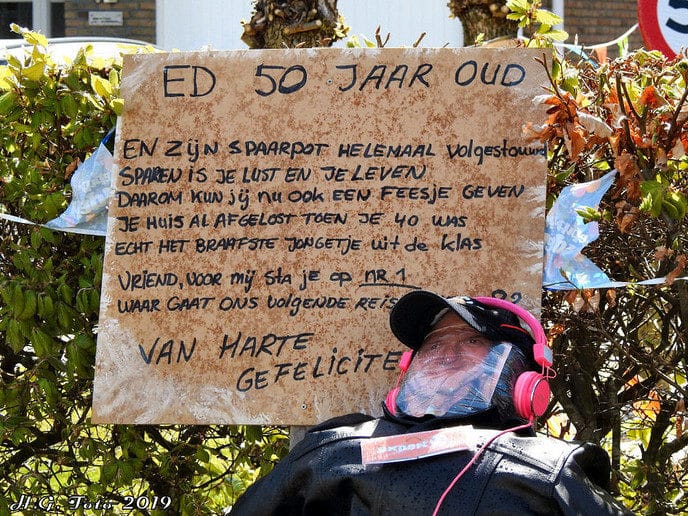 ED 50 JAAR OUD
EN ZijN SPAARPOT HELEMAAL Volgestouwd
SPAREN IS JE LUST EN JE LEVEN
DAAROM KUN JIJ NU OOK EEN FEESJE GEVEN
JE HUIS AL AFGELOST TOEN JE 40 WAS
ECHT HET BRAAFSTE JONGETJE uit de KLAS
VRIEND, VOOR MIJ STA JE OP NR 1
WAAR GAAT ONS VOLGENDE REIS
VAN HARTE
GEFELICITE
H.G. Foto 2019